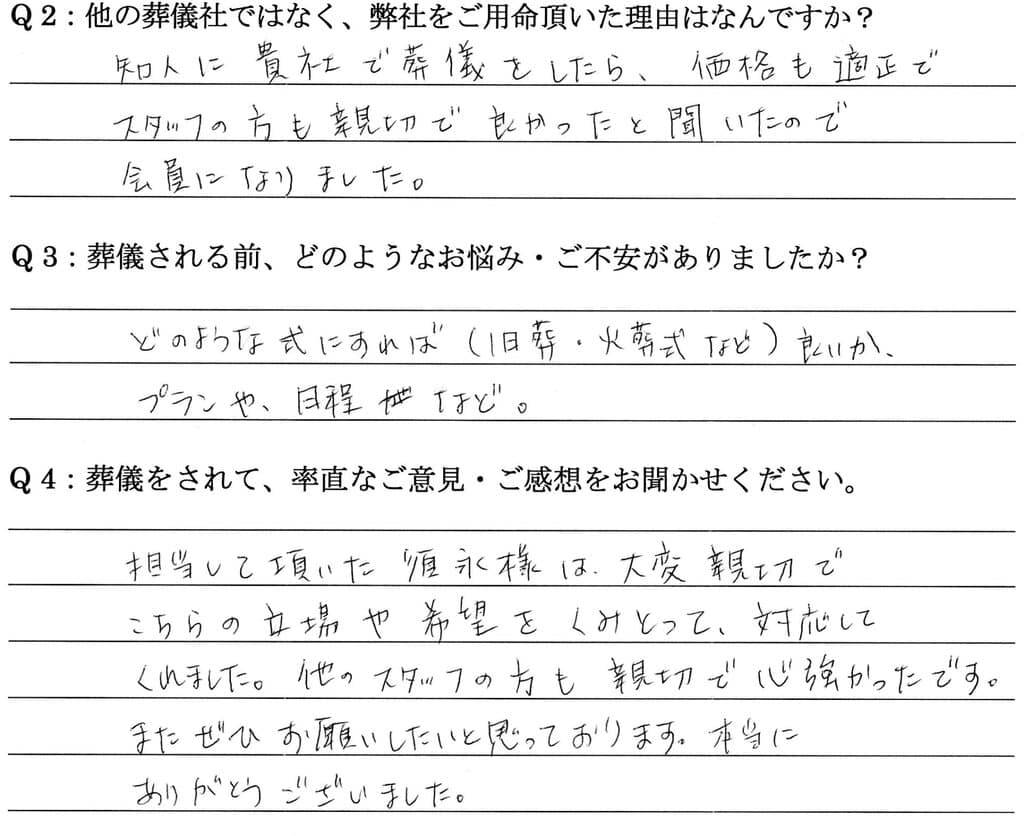 Q2：他の葬儀社ではなく、弊社をご用命頂いた理由はなんですか？
知人に貴社で葬儀をしたら、価格も適正で
スタッフの方も親切で良かったと聞いたので
会員になりました。
Q3：葬儀される前、どのようなお悩み・ご不安がありましたか？
どのような式にすれば（1日葬・火葬式など）良いか、
プランや、日程 など。
Q4：葬儀をされて、率直なご意見・ご感想をお聞かせください。
担当して頂いた須永様は、大変親切で
こちらの立場や希望をくみとって、対応して
くれました。他のスタッフの方も親切で心強かったです。
またぜひお願いしたいと思っております。本当に
ありがとうございました。